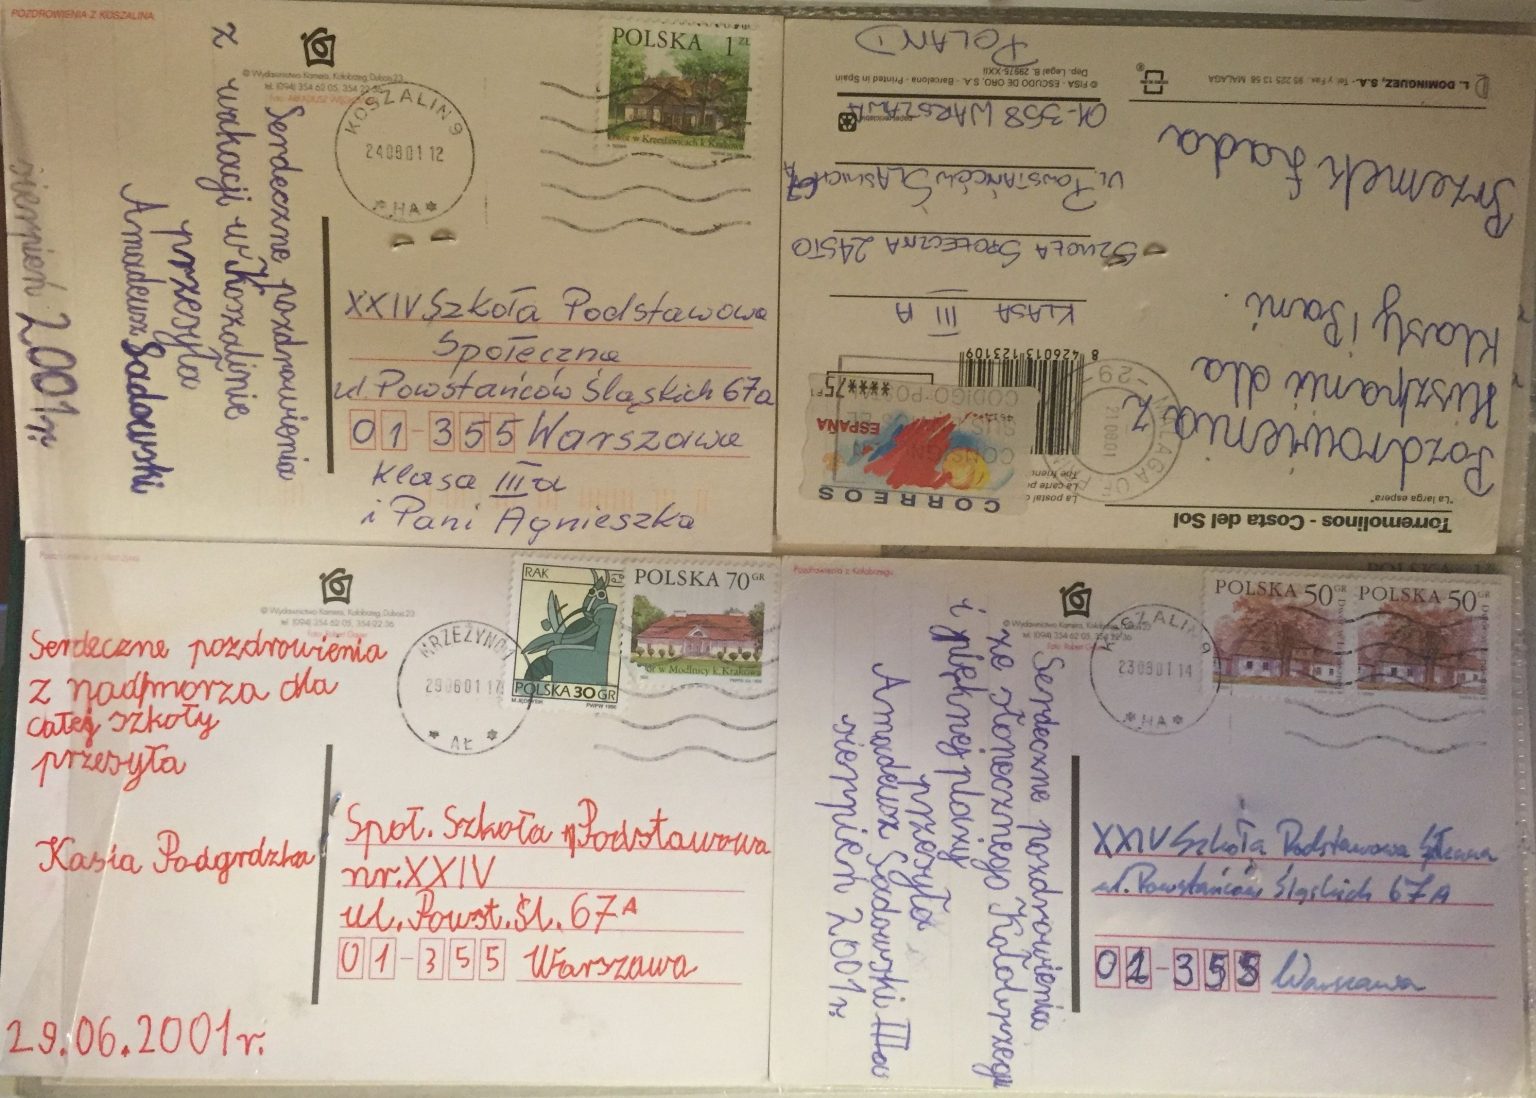 POZDROWIENIA Z KOSZALINA
© Wydawnictwo Kamera, Kołobrzeg, Dubois 23
tel. (094) 354 62 05, 354 22 36
POLSKA 1 ZŁ
Dwór w Krzesławicach k Krakowa
KOSZALIN 9
240801 12
* HA *
Serdeczne pozdrowienia
z wakacji w Koszalinie
przesyła
Amadeusz Sadowski
sierpień 2001r.
XXIV Szkoła Podstawowa
Społeczna
ul. Powstańców Śląskich 67a
01-355 Warszawa
klasa IIIa
i Pani Agnieszka
Torremolinos - Costa del Sol
"La larga espera"
Pozdrowienia z
Hiszpanii dla
klasy i Pani
Przemek Łada
CORREOS
ESPAÑA
****75
8 426013 123109
MALAGA
210801
-29-
KLASA III A
SZKOŁA SPOŁECZNA 24STO
Ul. POWSTAŃCÓW ŚLĄSKICH 67A
01-358 WARSZAWA
POLAND
© FISA - ESCUDO DE ORO, S.A. - Barcelona - Printed in Spain
Dep. Legal B. 29975-XXII
L. DOMINGUEZ, S.A. - Tel y Fax 95 225 13 58 MALAGA
© Wydawnictwo Kamera, Kołobrzeg, Dubois 23
tel. (094) 354 62 05, 354 22 36
RAK
POLSKA 30 GR
PWPW 1996
POLSKA 70 GR
Dwór w Modlnicy k Krakowa
MRZEŻYNO
290601 17
* AŁ *
Serdeczne pozdrowienia
z nadmorza dla
całej szkoły
przesyła
Kasia Podgrdzka
29.06.2001r.
Społ. Szkoła Podstawowa
nr. XXIV
ul. Powst. Śl. 67A
01-355 Warszawa
Pozdrowienia z Kołobrzegu
© Wydawnictwo Kamera, Kołobrzeg, Dubois 23
tel. (094) 354 62 05, 354 22 36
POLSKA 50 GR
POLSKA 50 GR
KOSZALIN 9
230801 14
* HA *
Serdeczne pozdrowienia
ze słonecznego Kołobrzegu
i pięknej plaży
przesyła
Amadeusz Sadowski IIIa
sierpień 2001r.
XXIV Szkoła Podstawowa
ul. Powstańców Śląskich 67A
01-355 Warszawa